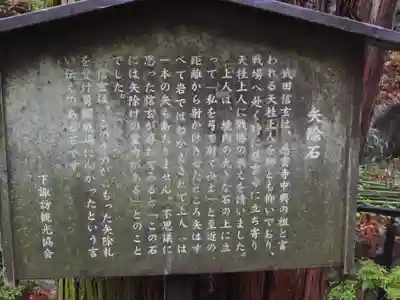 矢除石
武田信玄は、慈雲寺中興の祖と言
われる天桂上人を師とも仰いでおり、
戦場へ赴く途中慈雲寺に立ち寄り
天桂上人に戦勝の教えを請いました。
上人は、境内の大きな石の上に立
って「私を弓で射てみよ」と至近の
距離から射かけさせたところ矢はす
べて岩ではねかえされて上人には
一本の矢もあたりません。不思議に
思った信玄が尋ねてみると「この石
には矢除けの霊力がある」とのこと
でした。
信玄は、この力がこもった矢除札
を受け
戦場に向かったという言
い伝えのある石です。
下諏訪観光協会